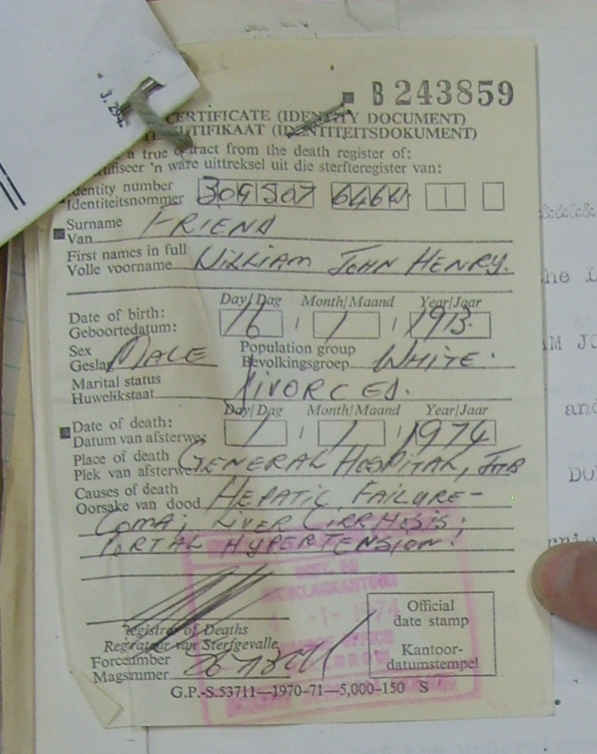 J. 294.
B 243859
CERTIFICATE (IDENTITY DOCUMENT)
(IDENTITEITSDOKUMENT)
a true extract from the death register of:
'n ware uittreksel uit die sterfteregister van:
Identity number 309 507 646W 1
Identiteitsnommer
Surname FRIEND
Van
First names in full WILLIAM JOHN HENRY.
Volle voorname
Day/Dag Month/Maand Year/Jaar
Date of birth: 16 1 1913.
Geboortedatum:
Sex MALE Population group WHITE.
Geslag Bevolkingsgroep
Marital status DIVORCED.
Huwelikstaat
Day/Dag Month/Maand Year/Jaar
Date of death: 1 1 1974
Datum van afsterwe:
Place of death GENERAL HOSPITAL, JHB
Plek van afsterwe
Causes of death HEPATIC FAILURE-
Oorsake van dood
COMA; LIVER CIRRHOSIS;
PORTAL HYPERTENSION!
Registrar of Deaths
Registrateur van Sterfgevalle
Force number
Magsnummer
Official
date stamp
Kantoor-
datumstempel
G.P.-S.53711—1970-71—5,000-150 S
and